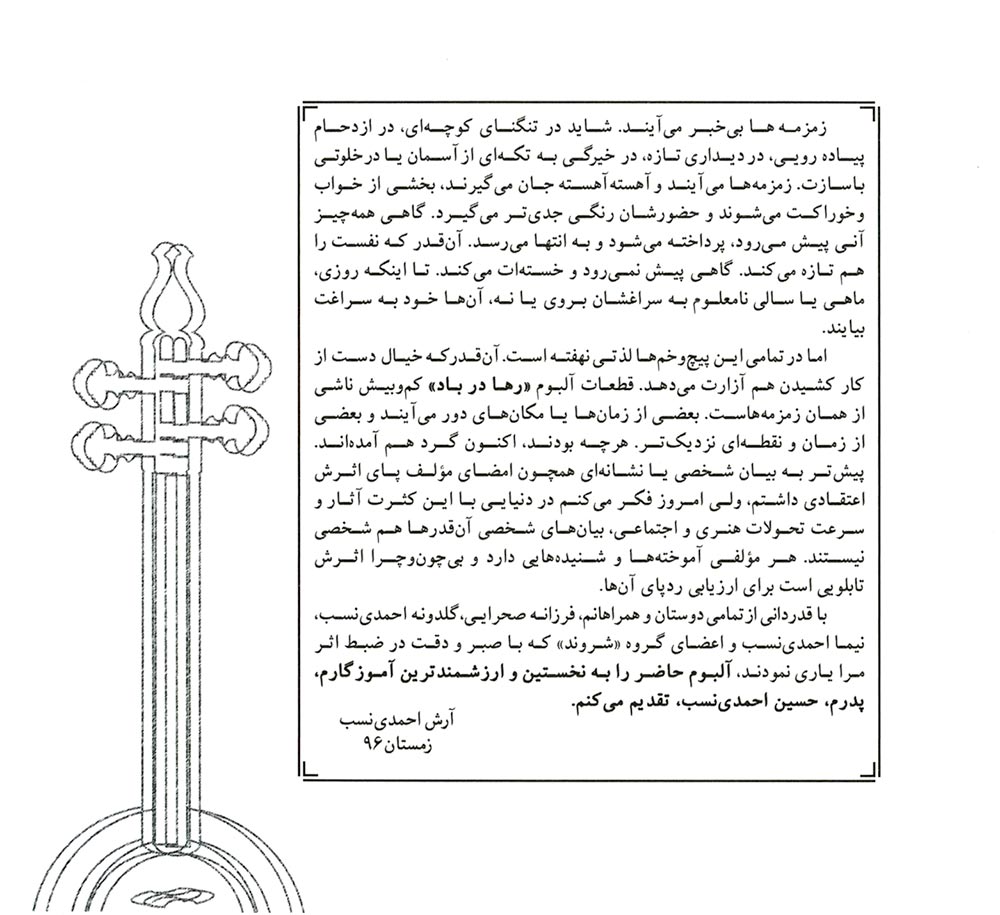 زمزمه ها بی‌خبر می‌آیند. شاید در تنگنای کوچه‌ای، در ازدحام
پیاده رویی، در دیداری تازه، در خیرگی به تکه‌ای از آسمان یا در خلوتی
باسازت. زمزمه‌ها می‌آیند و آهسته‌آهسته جان می‌گیرند، بخشی از خواب
وخوراکت می‌شوند و حضورشان رنگی جدی‌تر می‌گیرد. گاهی همه‌چیز
آنی پیش می‌رود، پرداخته می‌شود و به انتها می‌رسد. آن‌قدر که نفست را
هم تازه می‌کند. گاهی پیش نمی‌رود و خسته‌ات می‌کند. تا اینکه روزی،
ماهی یا سالی نامعلوم به سراغشان بروی یا نه، آن‌ها خود به سراغت
بیایند.
اما در تمامی این پیچ‌وخم‌ها لذتی نهفته است. آن‌قدرکه خیال دست از
کار کشیدن هم آزارت می‌دهد. قطعات آلبوم «رها در باد» کم‌وبیش ناشی
از همان زمزمه‌هاست. بعضی از زمان‌ها یا مکان‌های دور می‌آیند و بعضی
از زمان و نقطه‌ای نزدیک‌تر. هرچه بودند، اکنون گرد هم آمده‌اند.
پیش‌تر به بیان شخصی یا نشانه‌ای همچون امضای مؤلف پای اثرش
اعتقادی داشتم، ولی امروز فکر می‌کنم در دنیایی با این کثرت آثار و
سرعت تحولات هنری و اجتماعی، بیان‌های شخصی آن‌قدرها هم شخصی
نیستند. هر مؤلفی آموخته‌ها و شنیده‌هایی دارد و بی‌چون‌وچرا اثرش
تابلویی است برای ارزیابی ردپای آن‌ها.
با قدردانی از تمامی دوستان و همراهانم، فرزانه صحرایی، گلدونه احمدی‌نسب،
نیما احمدی‌نسب و اعضای گروه «شروند» که با صبر و دقت در ضبط اثر
مرا یاری نمودند، آلبوم حاضر را به نخستین و ارزشمندترین آموزگارم،
پدرم، حسین احمدی‌نسب، تقدیم می‌کنم.
آرش احمدی‌نسب
زمستان ۹۶